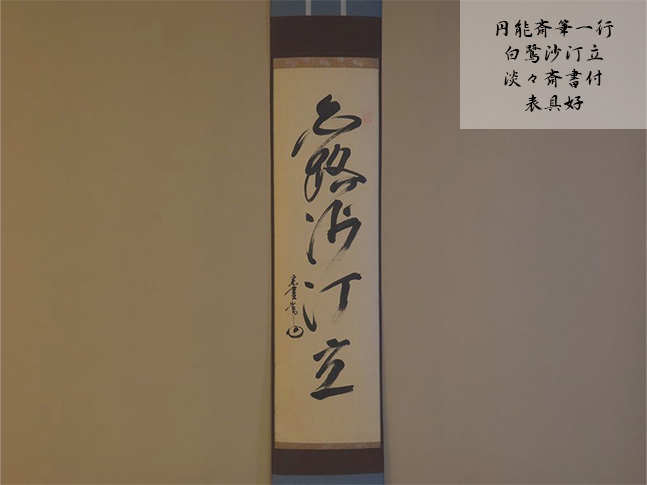 円能斎筆一行
白鷺沙汀立
淡々斎書付
表具好
白鷺沙汀立